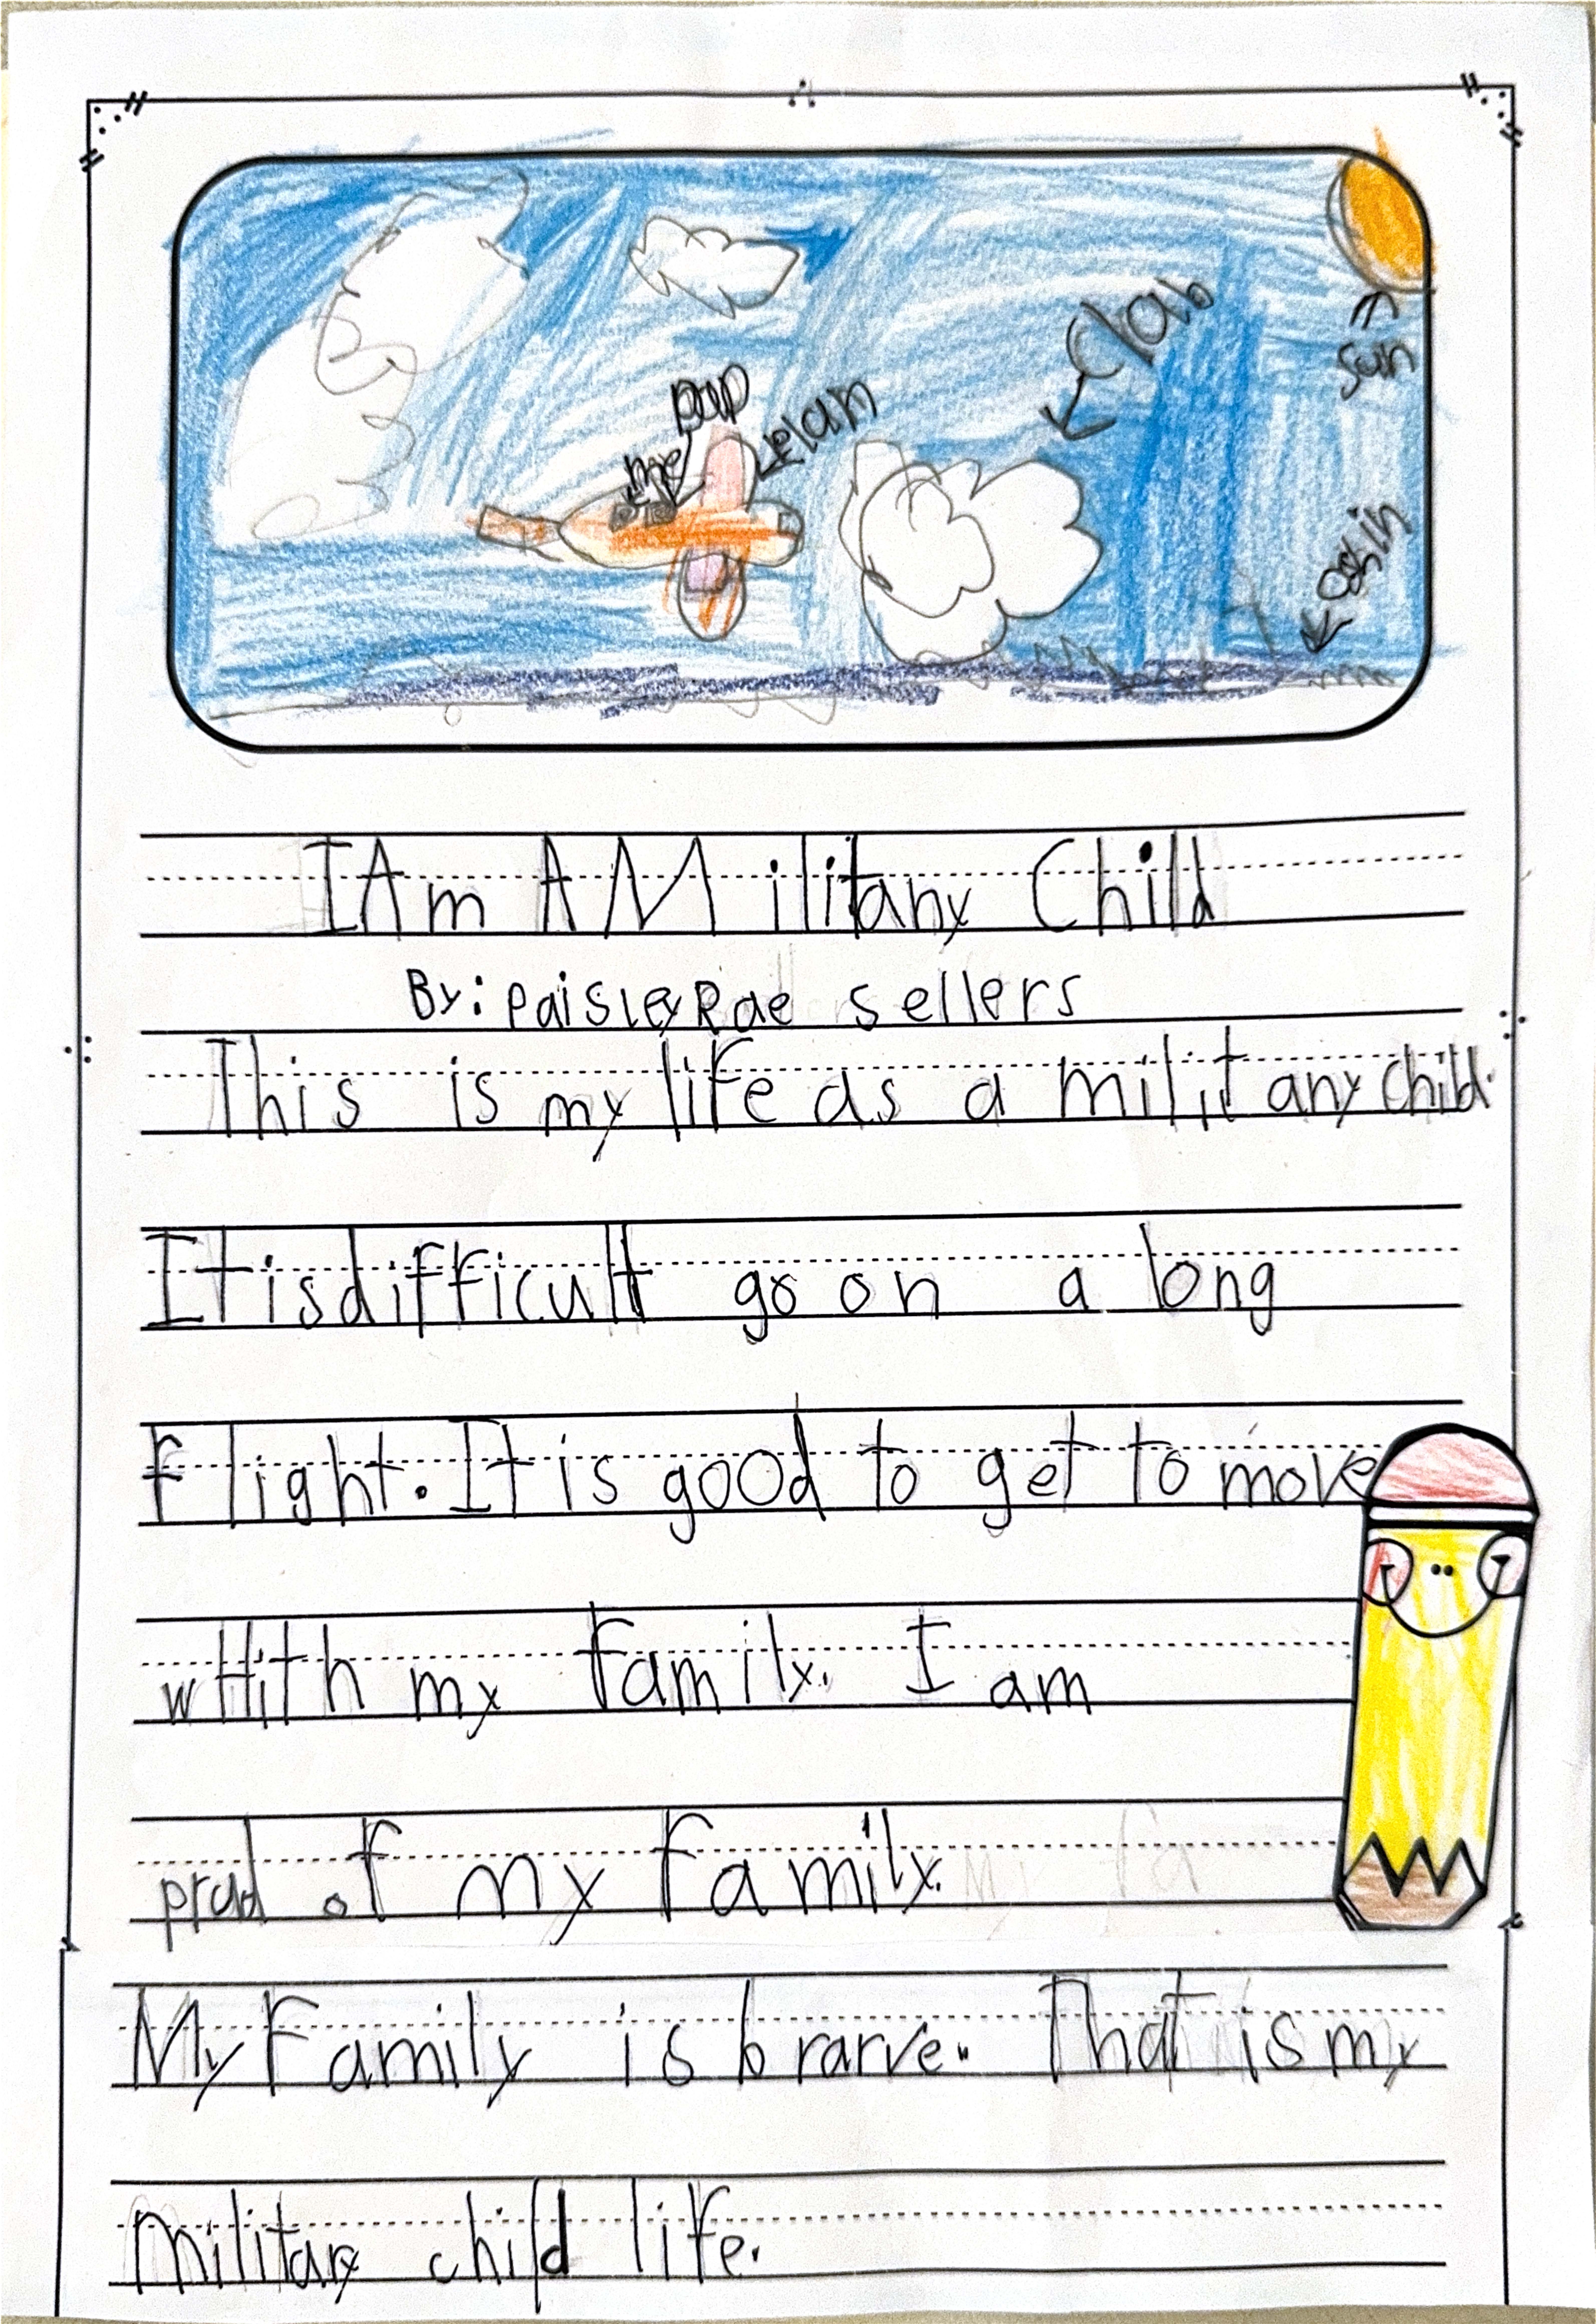 Clab
sun
pap
elan
me
oshin
I Am A Military Child
By: Paisley Rae sellers
This is my life as a military child.
It is difficult go on a long
flight. It is good to get to move
whith my family. I am
prad of my family.
My Family is brarve. That is my
military child life.